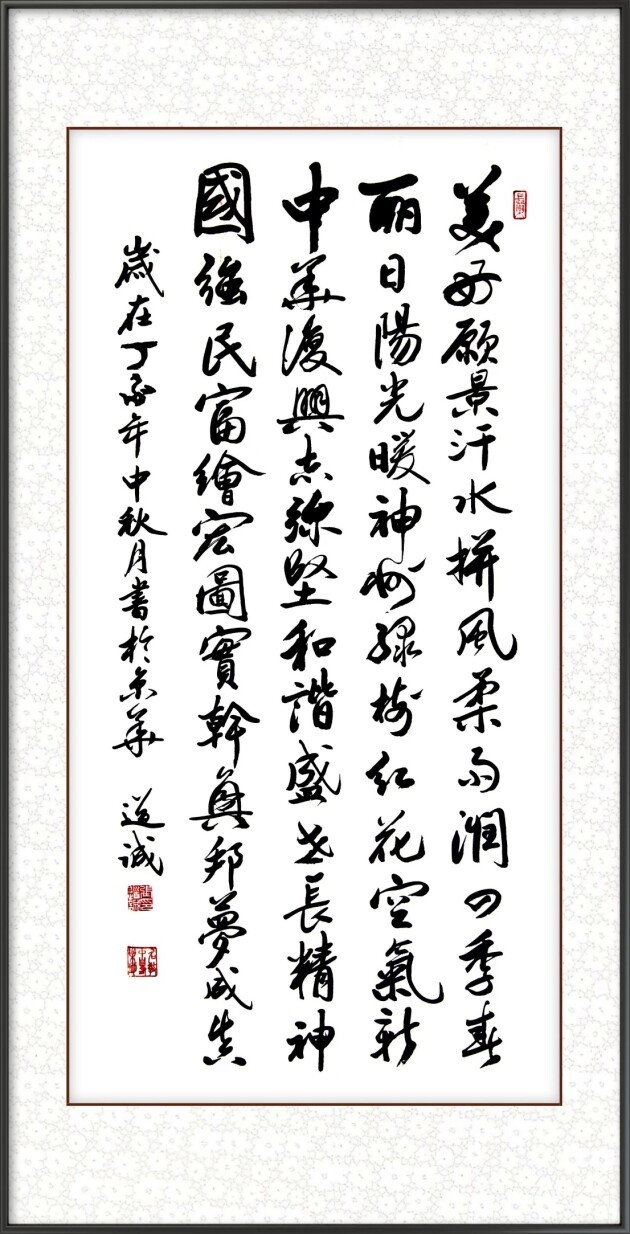 美好願景汗水拼風柔雨潤四季春
丽日陽光暖神州綠樹紅花空氣新
中華復興志弥堅和諧盛世長精神
國強民富繪宏圖實幹興邦夢成真
歲在丁亥年中秋月書於京華 道誠